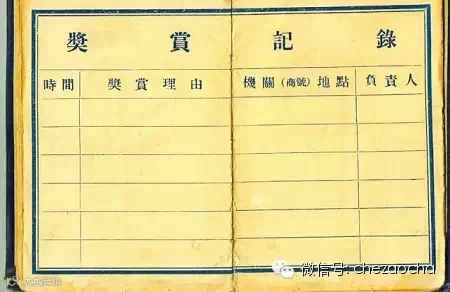 獎賞記錄
時間 獎賞理由 機關(商號)地點 負責人
微信号: chezaocha